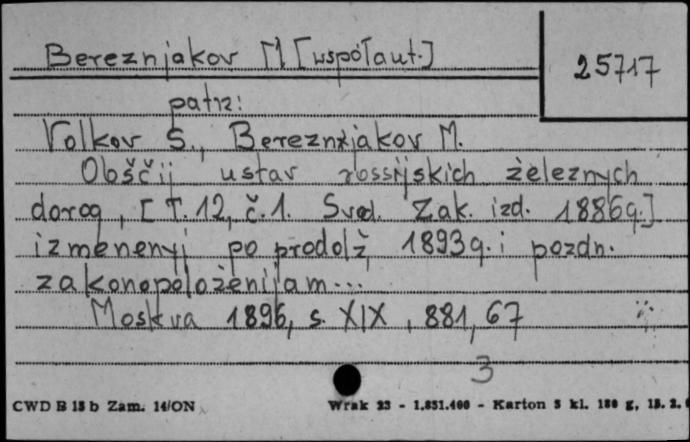 Bereznjakov M [współaut.]
25717
patrz:
Volkov S., Bereznjakov M.
Obščij ustav rossijskich železnych
dorog, [T. 12, č. 1. Svod. Zak. izd. 1886g.]
izmenenyj po prodolž, 1893g. i pozdn.
zakonopoloženijam...
Moskva 1896, s. XIX, 881, 67
3
CWD B 15 b Zam. 14/ON Wrak 23 - 1.851.400 - Karton 5 kl. 180 g, 15. 2.